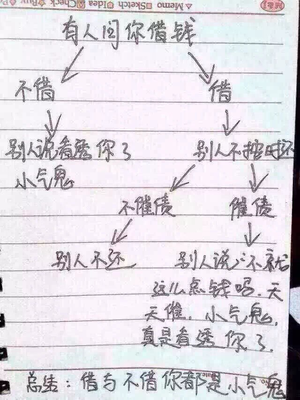 Memo □Sketch □Idea □Check
有人问你借钱
不借 借
别人说看透你了
小气鬼
别人不按时还
不催债 催债
别人不还
别人说:不就
这么点钱吗,天
天催,小气鬼,
真是看透你了.
总结:借与不借你都是小气鬼